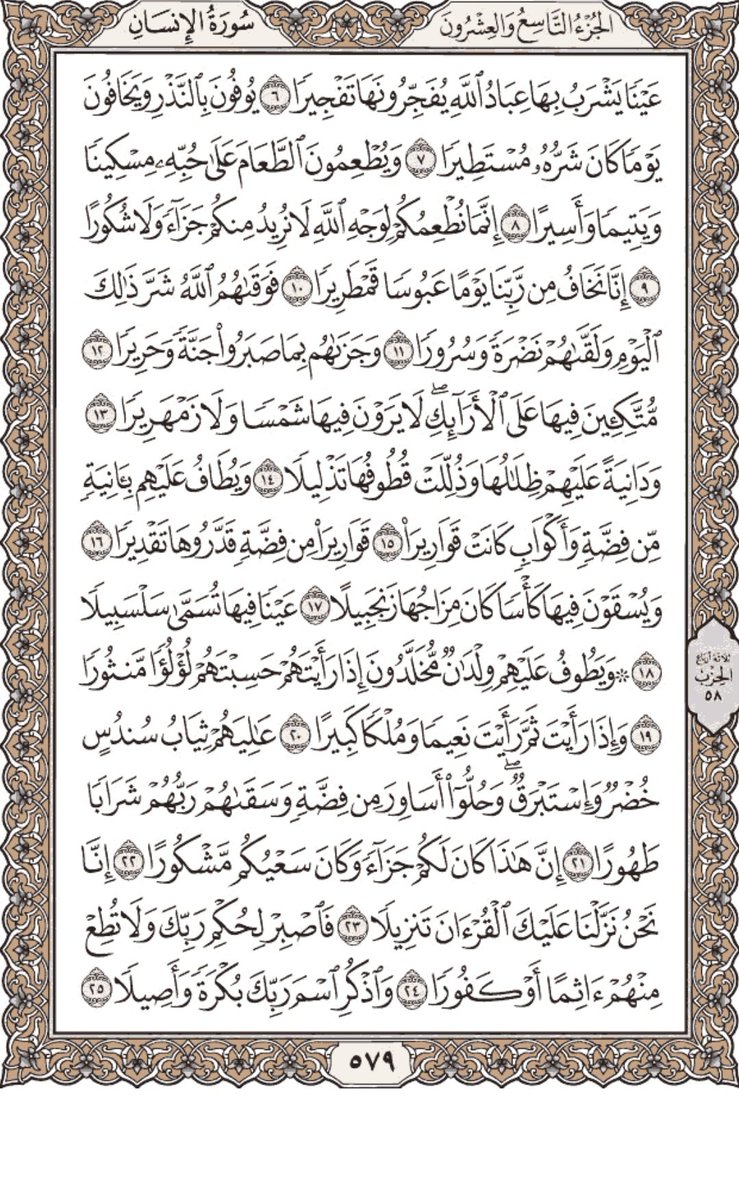 الجُزْءُ التَّاسِعُ وَالعِشْرُونَ
سُورَةُ الإِنسَانِ
عَيْنًا يَشْرَبُ بِهَا عِبَادُ ٱللَّهِ يُفَجِّرُونَهَا تَفْجِيرًا ٦ يُوفُونَ بِٱلنَّذْرِ وَيَخَافُونَ
يَوْمًا كَانَ شَرُّهُۥ مُسْتَطِيرًا ٧ وَيُطْعِمُونَ ٱلطَّعَامَ عَلَىٰ حُبِّهِۦ مِسْكِينًا
وَيَتِيمًا وَأَسِيرًا ٨ إِنَّمَا نُطْعِمُكُمْ لِوَجْهِ ٱللَّهِ لَا نُرِيدُ مِنكُمْ جَزَآءً وَلَا شُكُورًا
٩ إِنَّا نَخَافُ مِن رَّبِّنَا يَوْمًا عَبُوسًا قَمْطَرِيرًا ١٠ فَوَقَىٰهُمُ ٱللَّهُ شَرَّ ذَٰلِكَ
ٱلْيَوْمِ وَلَقَّىٰهُمْ نَضْرَةً وَسُرُورًا ١١ وَجَزَىٰهُم بِمَا صَبَرُوا۟ جَنَّةً وَحَرِيرًا ١٢
مُّتَّكِـِٔينَ فِيهَا عَلَى ٱلْأَرَآئِكِ ۖ لَا يَرَوْنَ فِيهَا شَمْسًا وَلَا زَمْهَرِيرًا ١٣
وَدَانِيَةً عَلَيْهِمْ ظِلَـٰلُهَا وَذُلِّلَتْ قُطُوفُهَا تَذْلِيلًا ١٤ وَيُطَافُ عَلَيْهِم بِـَٔانِيَةٍ
مِّن فِضَّةٍ وَأَكْوَابٍ كَانَتْ قَوَارِيرَا۠ ١٥ قَوَارِيرَا۟ مِن فِضَّةٍ قَدَّرُوهَا تَقْدِيرًا ١٦
وَيُسْقَوْنَ فِيهَا كَأْسًا كَانَ مِزَاجُهَا زَنجَبِيلًا ١٧ عَيْنًا فِيهَا تُسَمَّىٰ سَلْسَبِيلًا
١٨ ۞ وَيَطُوفُ عَلَيْهِمْ وِلْدَٰنٌ مُّخَلَّدُونَ إِذَا رَأَيْتَهُمْ حَسِبْتَهُمْ لُؤْلُؤًا مَّنثُورًا
١٩ وَإِذَا رَأَيْتَ ثَمَّ رَأَيْتَ نَعِيمًا وَمُلْكًا كَبِيرًا ٢٠ عَـٰلِيَهُمْ ثِيَابُ سُندُسٍ
خُضْرٌ وَإِسْتَبْرَقٌ ۖ وَحُلُّوٓا۟ أَسَاوِرَ مِن فِضَّةٍ وَسَقَىٰهُمْ رَبُّهُمْ شَرَابًا
طَهُورًا ٢١ إِنَّ هَـٰذَا كَانَ لَكُمْ جَزَآءً وَكَانَ سَعْيُكُم مَّشْكُورًا ٢٢ إِنَّا
نَحْنُ نَزَّلْنَا عَلَيْكَ ٱلْقُرْءَانَ تَنزِيلًا ٢٣ فَٱصْبِرْ لِحُكْمِ رَبِّكَ وَلَا تُطِعْ
مِنْهُمْ ءَاثِمًا أَوْ كَفُورًا ٢٤ وَٱذْكُرِ ٱسْمَ رَبِّكَ بُكْرَةً وَأَصِيلًا ٢٥
ثلاثة أرباع
الحِزْبُ
٥٨
٥٧٩